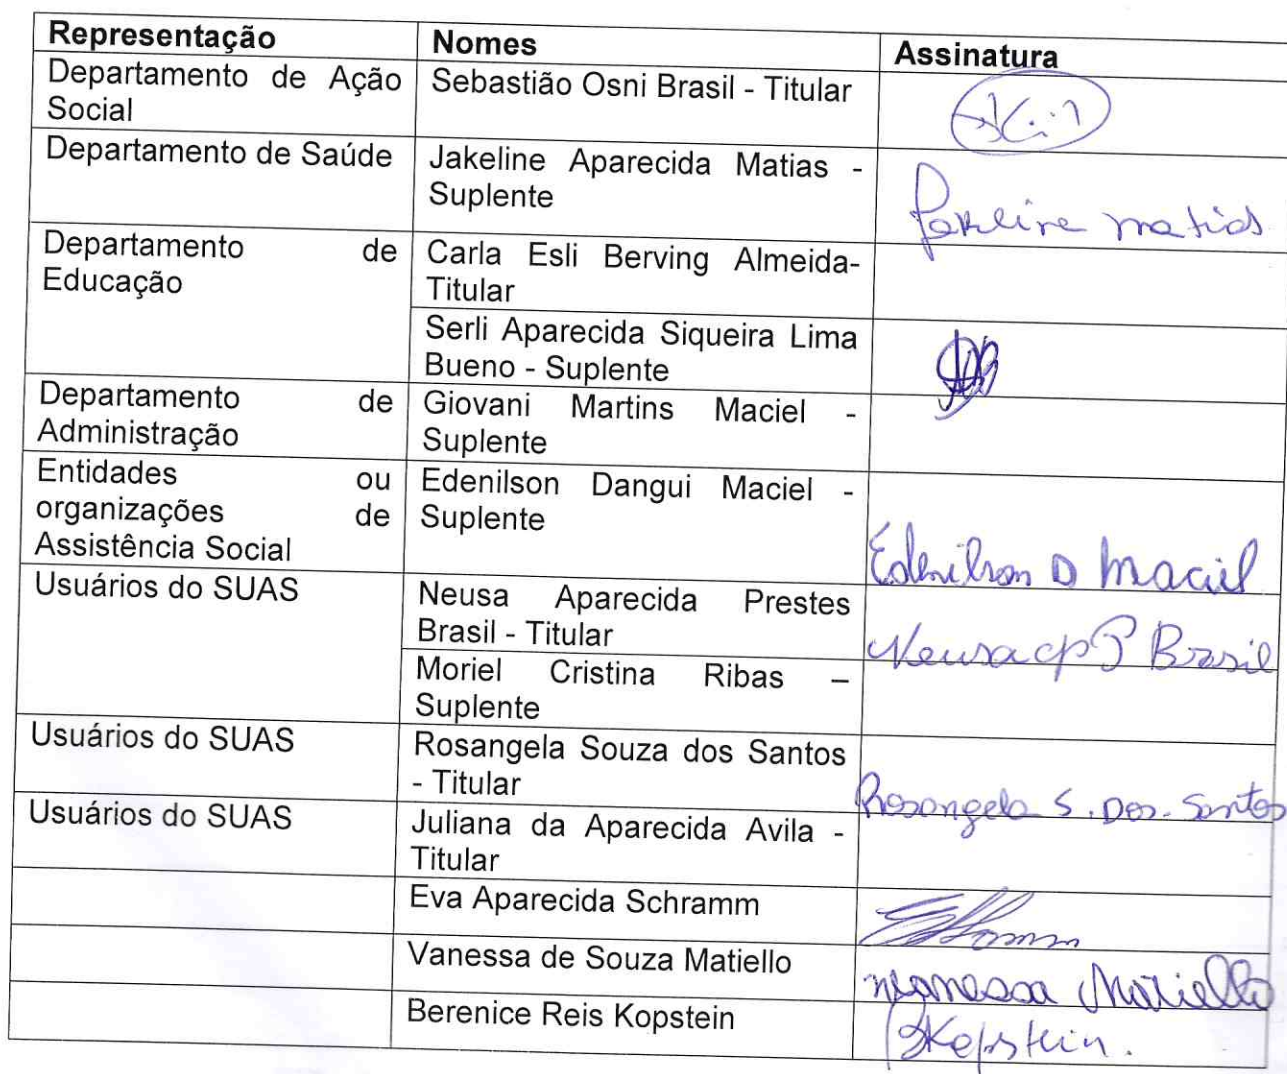 Representação Nomes Assinatura
Departamento de Ação Sebastião Osni Brasil - Titular
Social
Departamento de Saúde Jakeline Aparecida Matias -
Suplente
Jakeline matias
Departamento de Carla Esli Berving Almeida-
Educação Titular
Serli Aparecida Siqueira Lima
Bueno - Suplente
Departamento de Giovani Martins Maciel -
Administração Suplente
Entidades ou Edenilson Dangui Maciel -
organizações de Suplente
Assistência Social Edenilson D Maciel
Usuários do SUAS Neusa Aparecida Prestes
Brasil - Titular Neusa ap P Brasil
Moriel Cristina Ribas –
Suplente
Usuários do SUAS Rosangela Souza dos Santos
- Titular Rosangela S. Dos. Santos
Usuários do SUAS Juliana da Aparecida Avila -
Titular
Eva Aparecida Schramm
Vanessa de Souza Matiello Vanessa Matiello
Berenice Reis Kopstein BKopstein.